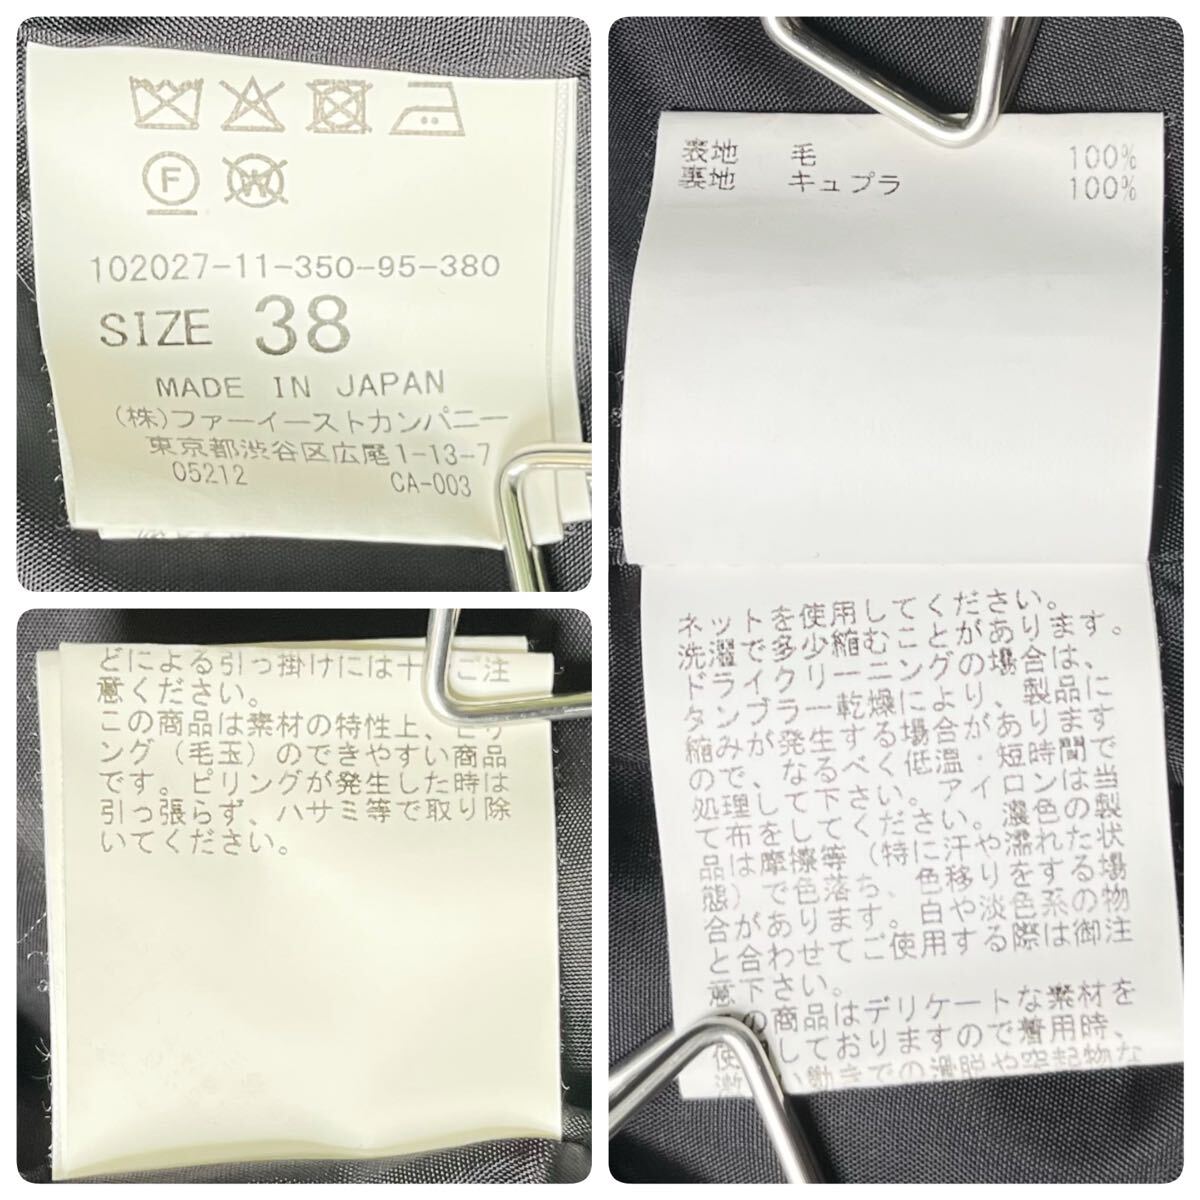 F
W
102027-11-350-95-380
SIZE 38
MADE IN JAPAN
(株)ファーイーストカンパニー
東京都渋谷区広尾1-13-7
05212 CA-003
表地 毛 100%
裏地 キュプラ 100%
ネットを使用してください。
洗濯で多少縮むことがあります。
ドライクリーニングの場合は、
タンブラー乾燥により、製品に
縮みが発生する場合があります
ので、なるべく低温・短時間で
処理して下さい。アイロンは当
て布をしてください。濃色の製
品は摩擦等（特に汗や濡れた状
態）で色落ち、色移りをする場
合があります。白や淡色系の物
と合わせてご使用する際は御注
意下さい。
の商品はデリケートな素材を
使 しておりますので着用時、
激 い動きでの着脱や突起物な
どによる引っ掛けには十 ご注
意ください。
この商品は素材の特性上、ピリ
ング（毛玉）のできやすい商品
です。ピリングが発生した時は
引っ張らず、ハサミ等で取り除
いてください。